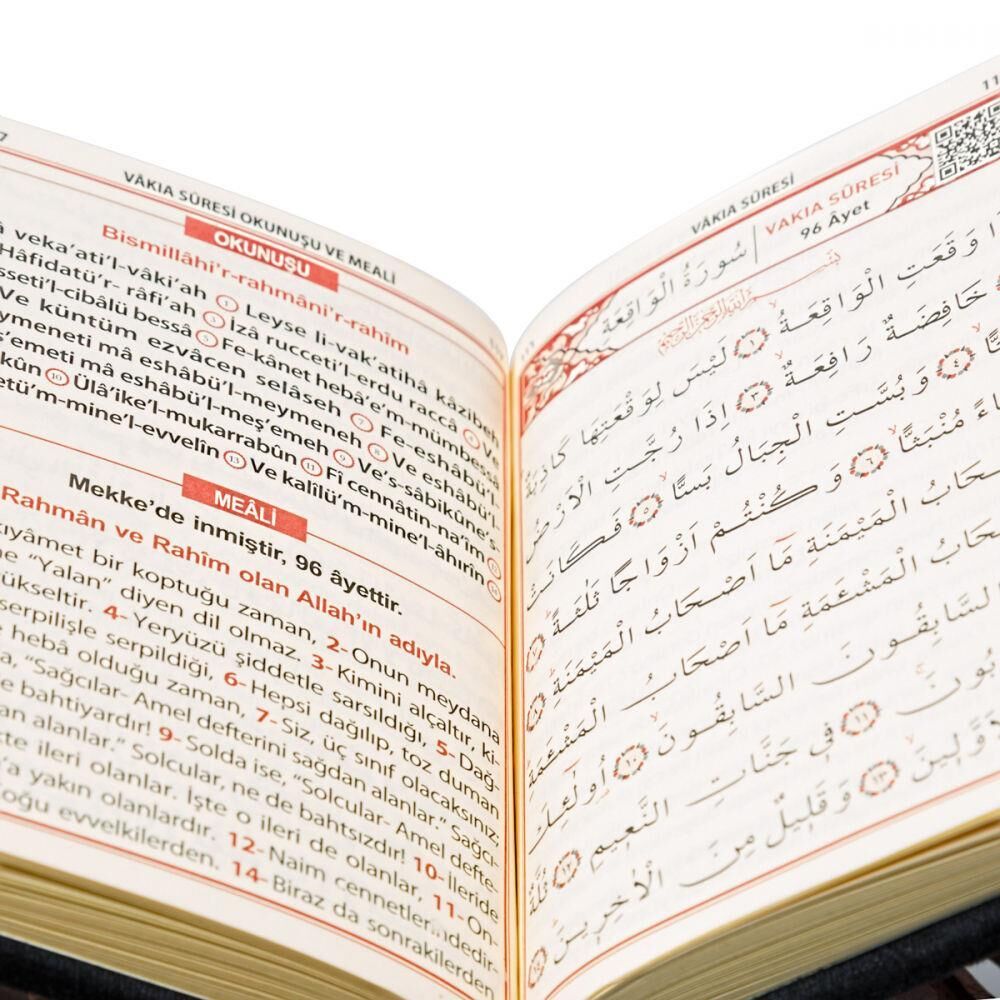 7
VÂKIA SÛRESİ OKUNUŞU VE MEALİ
OKUNUŞU
Bismillâhi'r-rahmâni'r-rahîm
veka'ati'l-vâki'ah ① Leyse li-vak'atihâ kâzibeh
Hâfidatü'r- râfi'ah ③ İzâ rucceti'l-erdu raccâ ④ Ve
sseti'l-cibâlü bessâ ⑤ Fe-kânet hebâ'e'm-mümbessâ
Ve küntüm ezvâcen selâseh ⑦ Fe-eshâbü'l-
ymeneti mâ eshâbü'l-meymeneh ⑧ Ve eshâbü'l-
ş'emeti mâ eshâbü'l-meş'emeh ⑨ Ve's-sâbikûne's-
kûn ⑩ Ülâ'ike'l-mukarrabûn ⑪ Fî cennâtin-na'îm ⑫
etü'm-mine'l-evvelîn ⑬ Ve kalîlü'm-mine'l-âhırîn ⑭
MEÂLİ
Mekke'de inmiştir, 96 âyettir.
Rahmân ve Rahîm olan Allah'ın adıyla.
kıyâmet bir koptuğu zaman, 2- Onun meydana
"Yalan" diyen dil olmaz. 3- Kimini alçaltır, ki-
yükseltir. 4- Yeryüzü şiddetle sarsıldığı, 5- Dağ-
serpilişle serpildiği, 6- Hepsi dağılıp, toz duman
heba olduğu zaman, 7- Siz, üç sınıf olacaksınız;
"Sağcılar- Amel defterini sağdan alanlar." Sağcı-
e bahtiyardır! 9- Solda ise, "Solcular- Amel defte-
an alanlar." Solcular, ne de bahtsızdır! 10- İleride
te ileri olanlar. İşte o ileri de olanlar, 11- On-
'a yakın olanlardır. 12- Naim cennetlerindedir-
Çoğu evvelkilerden. 14- Biraz da sonrakilerden
11
VÂKIA SÛRESİ
سُورَةُ الْوَاقِعَةِ
VAKIA SÛRESİ
96 Âyet
وَقَعَتِ الْوَاقِعَةُ ﴿١﴾ لَيْسَ لِوَقْعَتِهَا كَاذِبَةٌ
خَافِضَةٌ رَافِعَةٌ ﴿٣﴾ اِذَا رُجَّتِ الْاَرْضُ
﴿٤﴾ وَبُسَّتِ الْجِبَالُ بَسًّا ﴿٥﴾ فَكَانَتْ
مُنْبَثًّا ﴿٦﴾ وَكُنْتُمْ اَزْوَاجًا ثَلٰثَةً ﴿٧﴾
حَابُ الْمَيْمَنَةِ مَٓا اَصْحَابُ الْمَيْمَنَةِ ﴿٨﴾
حَابُ الْمَشْـَٔمَةِ مَٓا اَصْحَابُ الْمَشْـَٔمَةِ
السَّابِقُونَ السَّابِقُونَ ﴿١٠﴾ اُولٰٓئِكَ
بُونَ ﴿١١﴾ فٖي جَنَّاتِ النَّعٖيمِ ﴿١٢﴾ ثُلَّةٌ
وَّلٖينَ ﴿١٣﴾ وَقَلٖيلٌ مِنَ الْاٰخِرٖينَ ﴿١٤﴾